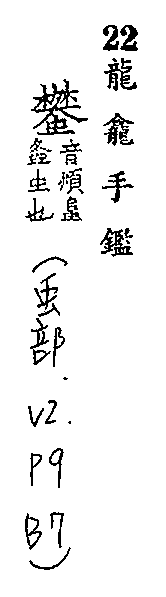 22龍龕手鑑
蠜音煩阜
螽虫也
(虫部. V2. P9 B7)